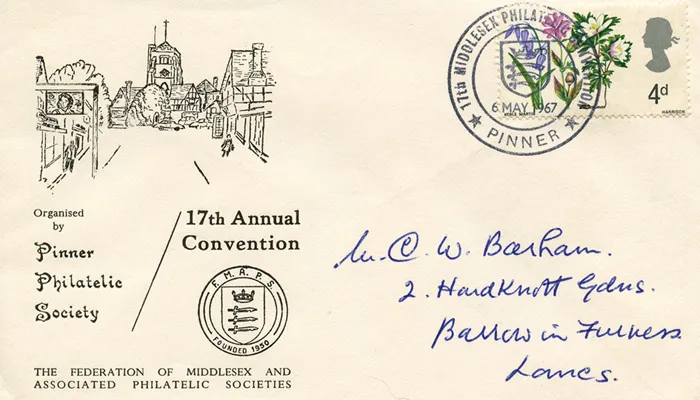 17th MIDDLESEX PHILATELIC CONVENTION
6 MAY 1967
★ PINNER ★
4d
HARRISON
Organised
by
Pinner
Philatelic
Society
17th Annual
Convention
F.M.A.P.S.
FOUNDED 1950
THE FEDERATION OF MIDDLESEX AND
ASSOCIATED PHILATELIC SOCIETIES
C. W. Barham.
2. Hardknott Gdns.
Barrow in Furness
Lancs.